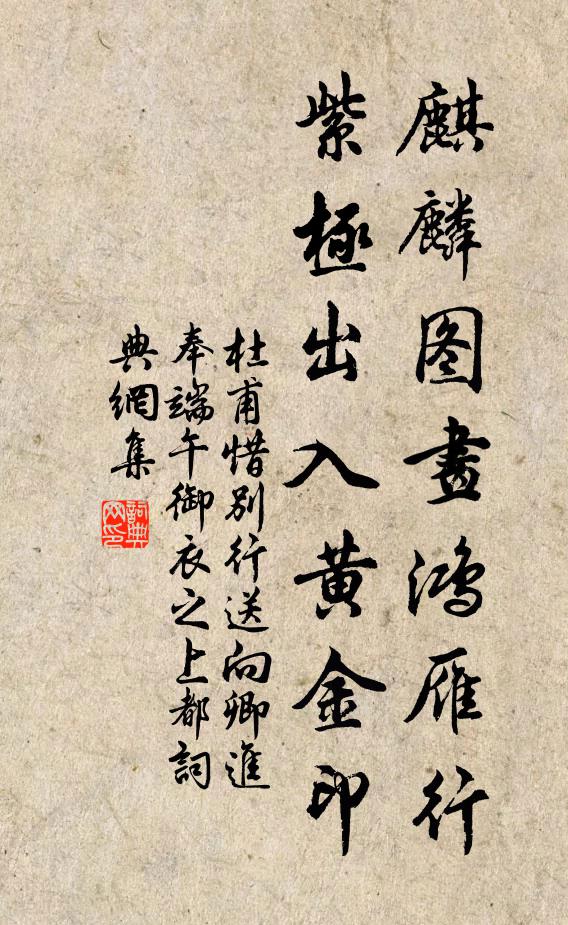 麒麟图畫鸿雁行
紫極出入黄金印
杜甫惜别行送向卿進
奉端午御衣之上都詞
典網集
詞典
网印